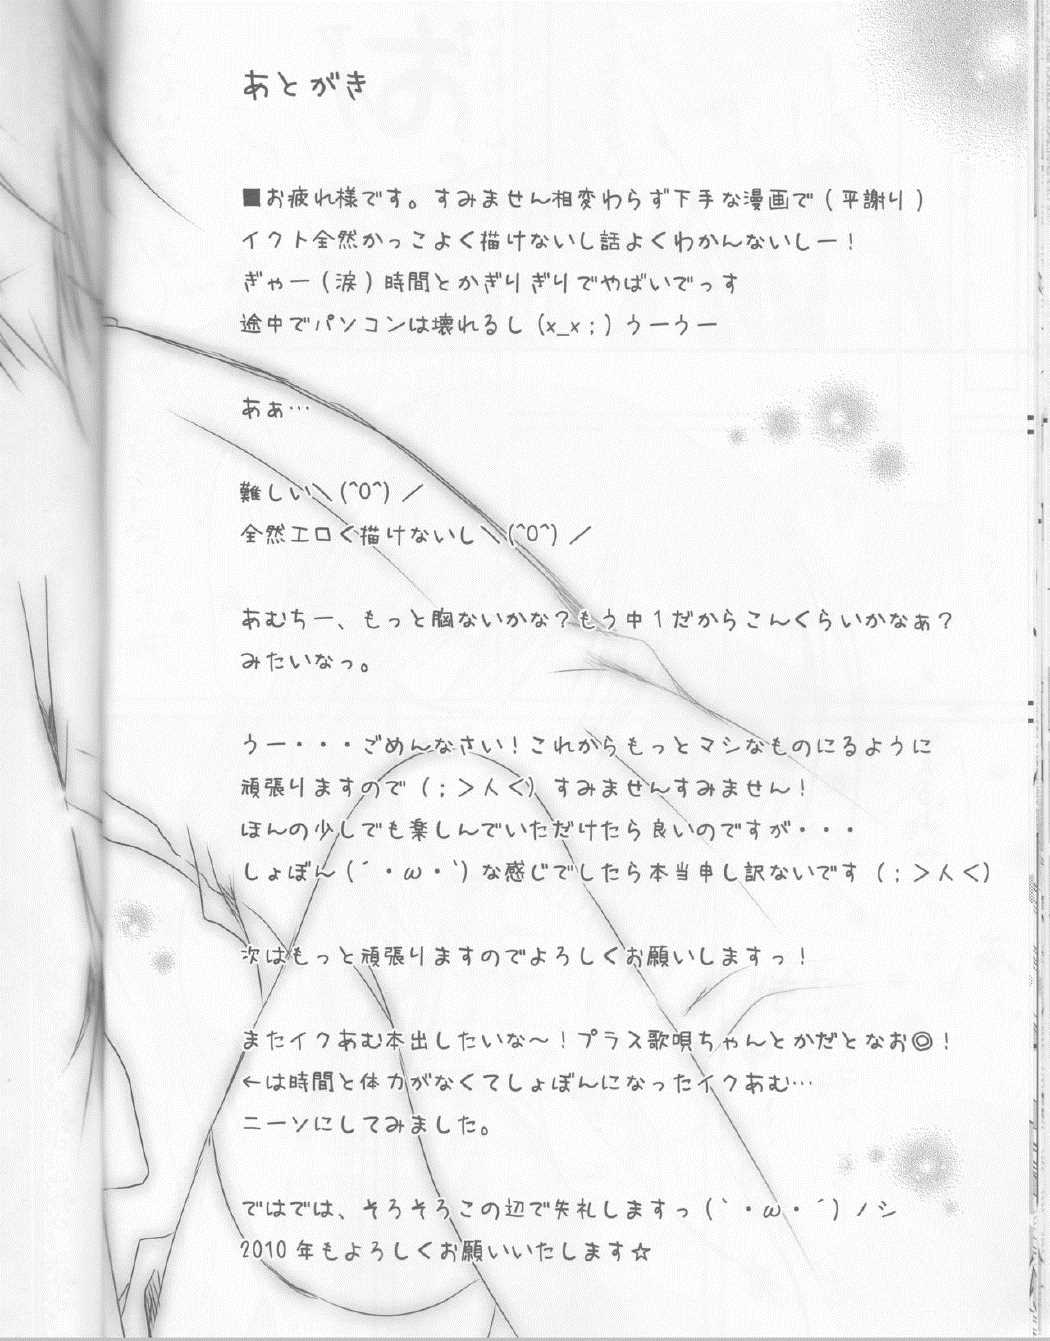 あとがき
■お疲れ様です。すみません相変わらず下手な漫画で（平謝り）
イクト全然かっこよく描けないし話よくわかんないしー！
ぎゃー（涙）時間とかぎりぎりでやばいでっす
途中でパソコンは壊れるし（x_x；）うーうー
あぁ…
難しい＼(^O^)／
全然エロく描けないし＼(^O^)／
あむちー、もっと胸ないかな？もう中１だからこんくらいかなぁ？
みたいなっ。
うー・・・ごめんなさい！これからもっとマシなものにるように
頑張りますので（；＞人＜）すみませんすみません！
ほんの少しでも楽しんでいただけたら良いのですが・・・
しょぼん（´・ω・`）な感じでしたら本当申し訳ないです（；＞人＜）
次はもっと頑張りますのでよろしくお願いしますっ！
またイクあむ本出したいな～！プラス歌唄ちゃんとかだとなお◎！
←は時間と体力がなくてしょぼんになったイクあむ…
ニーソにしてみました。
ではでは、そろそろこの辺で失礼しますっ（`・ω・´）ノシ
2010年もよろしくお願いいたします☆